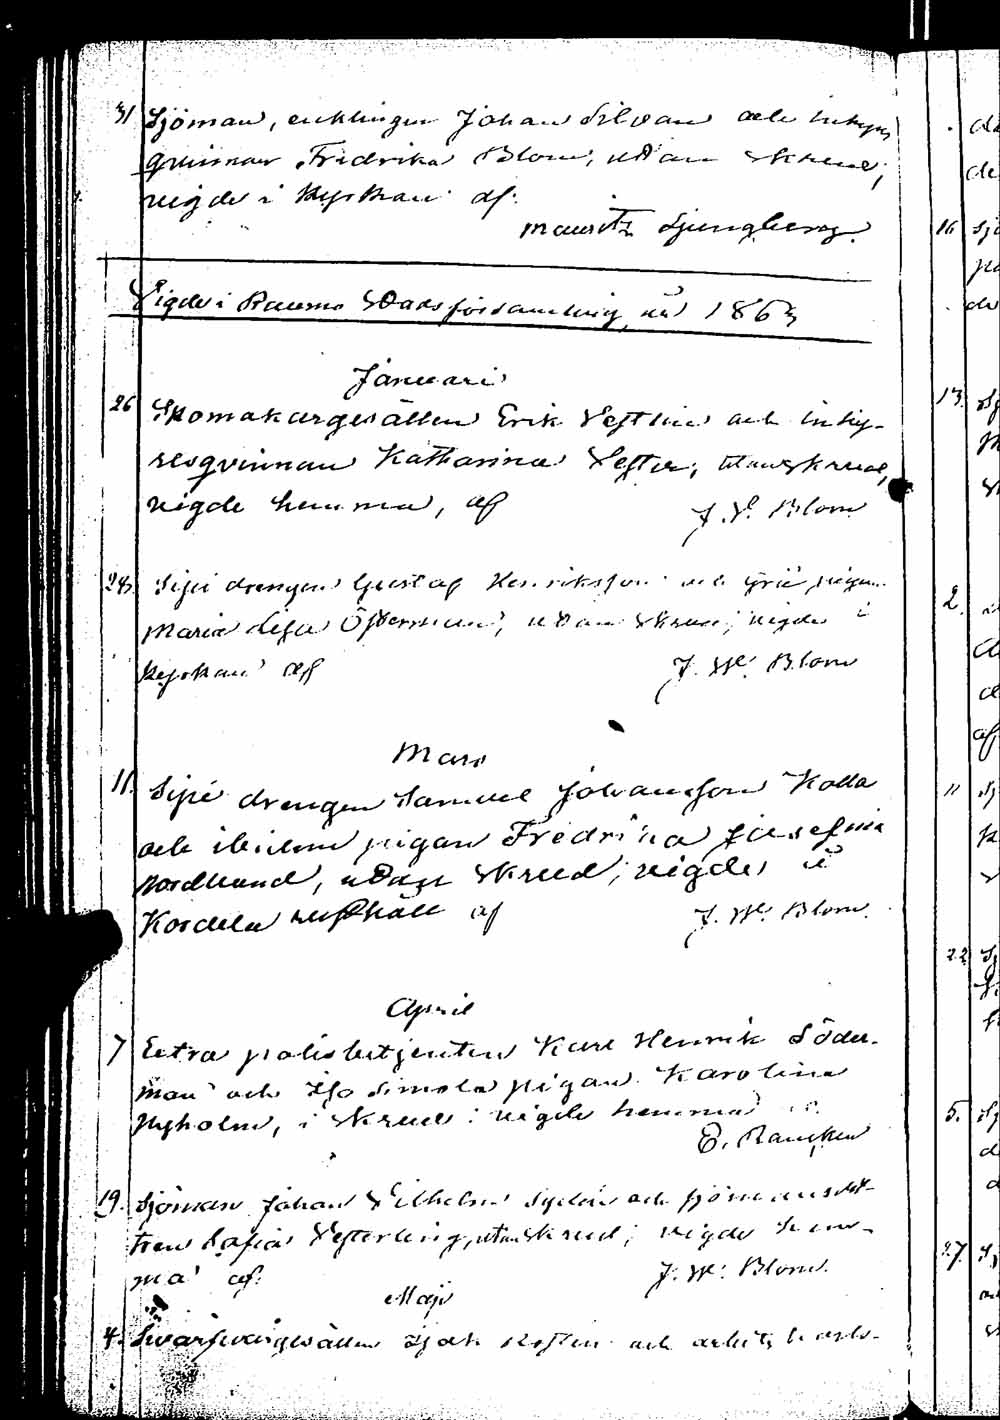 31 Sjöman, enklingen Johan Silvan och inhyses
qvinnan Fredrika Blom, utan skrud,
vigde i kyrkan af
Mauritz Ljungberg.
Vigde i Raumo Stadsförsamling år 1863
Januari
26 Skomakargesällen Erik Vestlin och inhy-
sesqvinnan Katharina Vester, utan skrud,
vigde hemma, af J. W. Blom
28. Sipi drengen Gustaf Henriksson och pigan
Maria Lisa Österman, utan skrud, vigde i
kyrkan af J. W. Blom
Mars
11. Sipi drengen Samuel Johansson Kolla
och ibidem pigan Fredrika Josefina
Nordlund, utan skrud, vigde å
Kordela rusthåll af J. W. Blom.
April
7 Extra polisbetjenten Karl Henrik Söder-
man och Iso Simola pigan Karolina
Nyholm, i skrud: vigde hemma
E. Rancken
19. Sjöman Johan Wilhelm och sjömansdot-
tren Sofia Vesterling, utan skrud; vigde hem-
ma af: J. W. Blom.
Maji
4. Svarfvaregesällen Isak och arbets karls-
16
13.
2.
11
22
5.
27.